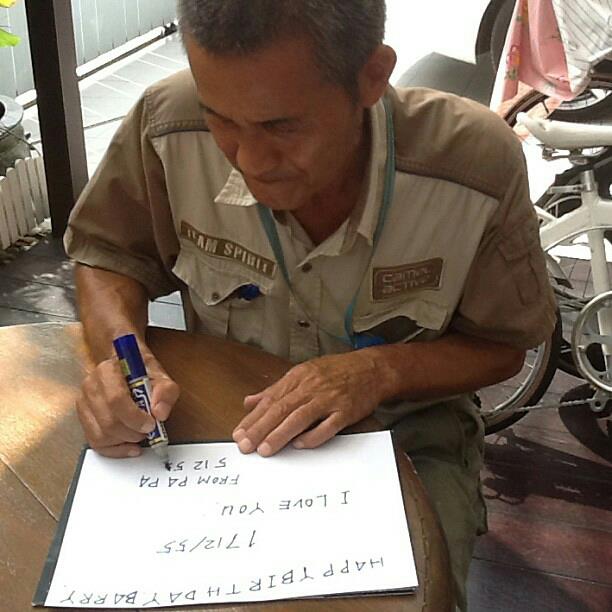 TEAM SPIRIT
camel
active
HAPPY BIRTHDAY BARRY
17/12/55
I LOVE YOU
FROM PA PA
5 12 55